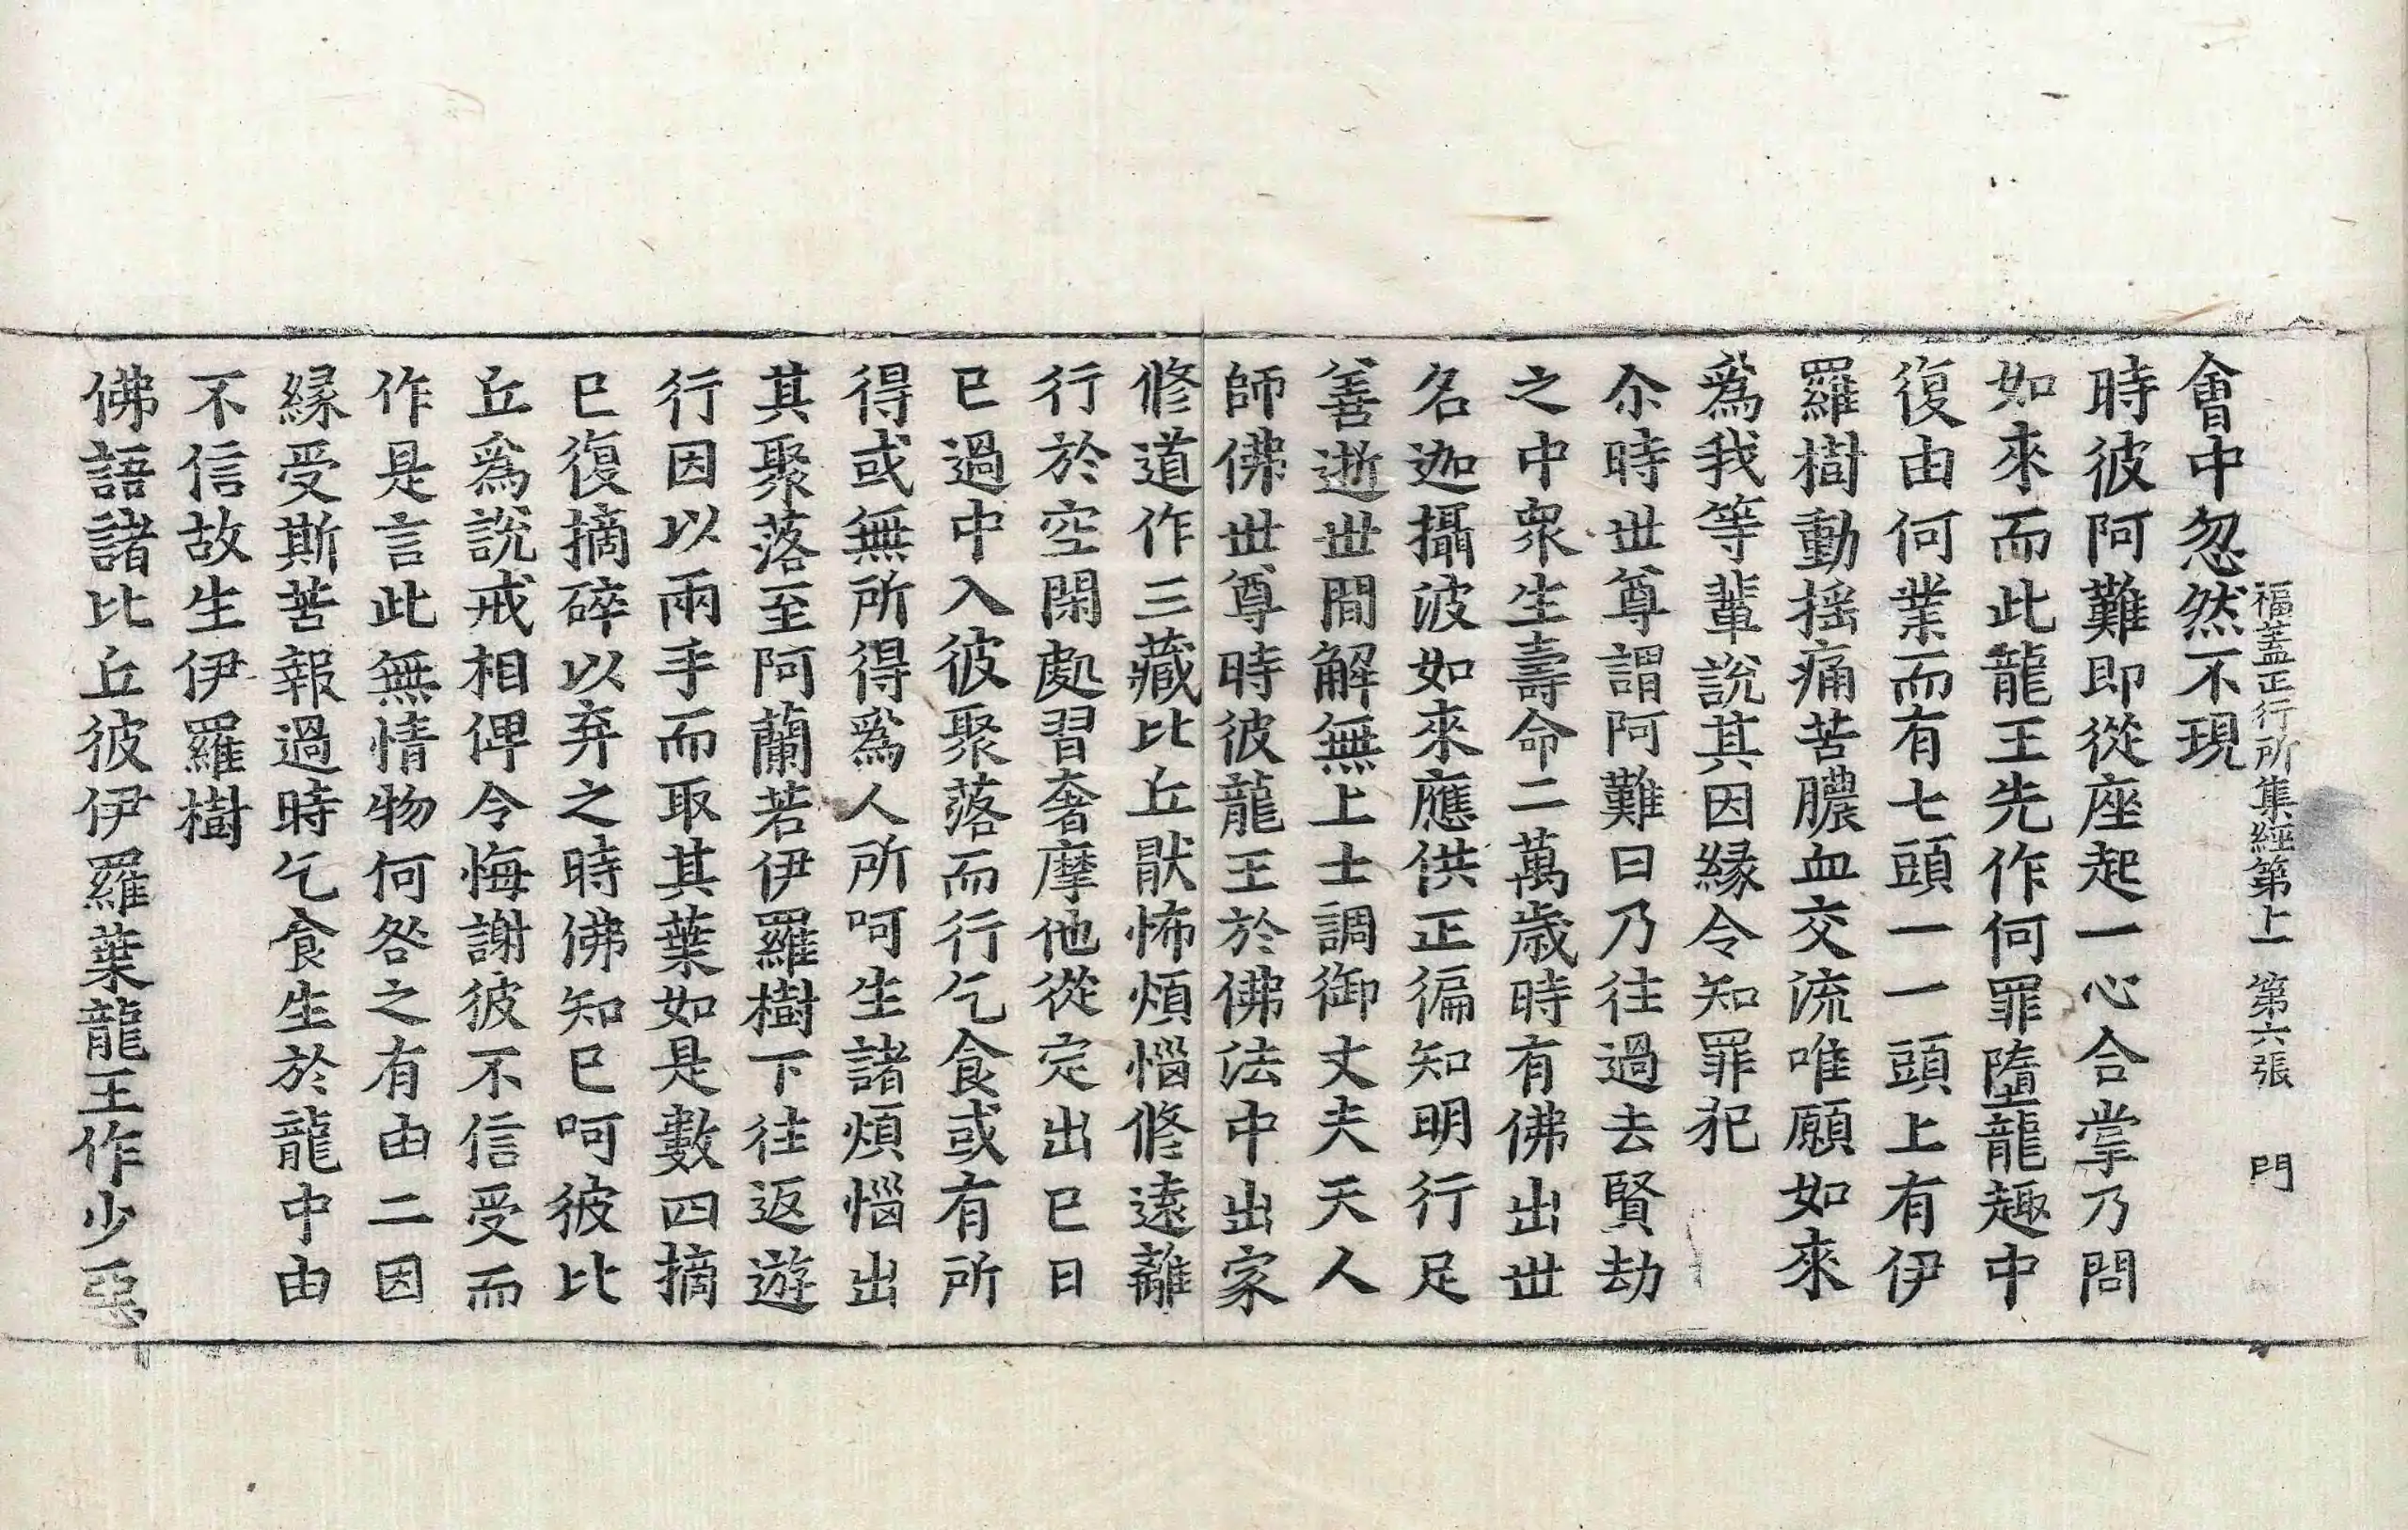 福蓋正行所集經第上　第六張　門
會中忽然不現
時彼阿難即從座起一心合掌乃問
如來而此龍王先作何罪墮龍趣中
復由何業而有七頭一一頭上有伊
羅樹動揺痛苦膿血交流唯願如來
爲我等輩說其因縁令知罪犯
尒時世尊謂阿難曰乃往過去賢劫
之中衆生壽命二萬歳時有佛出世
名迦攝波如來應供正徧知明行足
善逝世間解無上士調御丈夫天人
師佛世尊時彼龍王於佛法中出家
修道作三藏比丘猒怖煩惱修遠離
行於空閑處習奢摩他從定出已日
已過中入彼聚落而行乞食或有所
得或無所得爲人所呵生諸煩惱出
其聚落至阿蘭若伊羅樹下往返遊
行因以兩手而取其葉如是數四摘
已復摘碎以弃之時佛知已呵彼比
丘爲說戒相俾令悔謝彼不信受而
作是言此無情物何咎之有由二因
縁受斯苦報過時乞食生於龍中由
不信故生伊羅樹
佛語諸比丘彼伊羅葉龍王作少惡